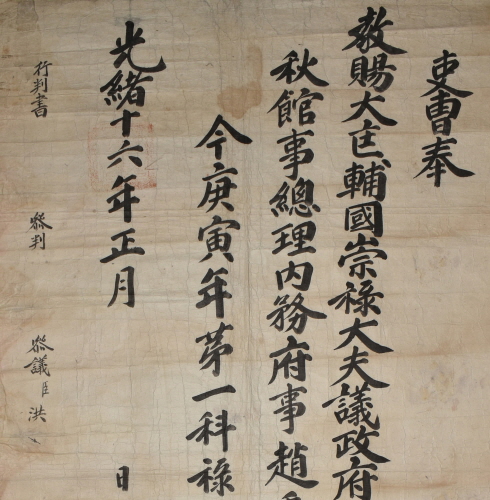 吏曹奉
敎賜大匡輔國崇祿大夫議政府
秋館事總理內務府事趙
今庚寅年苐一科祿
光緖十六年正月 日
行判書 叅判 叅議臣洪